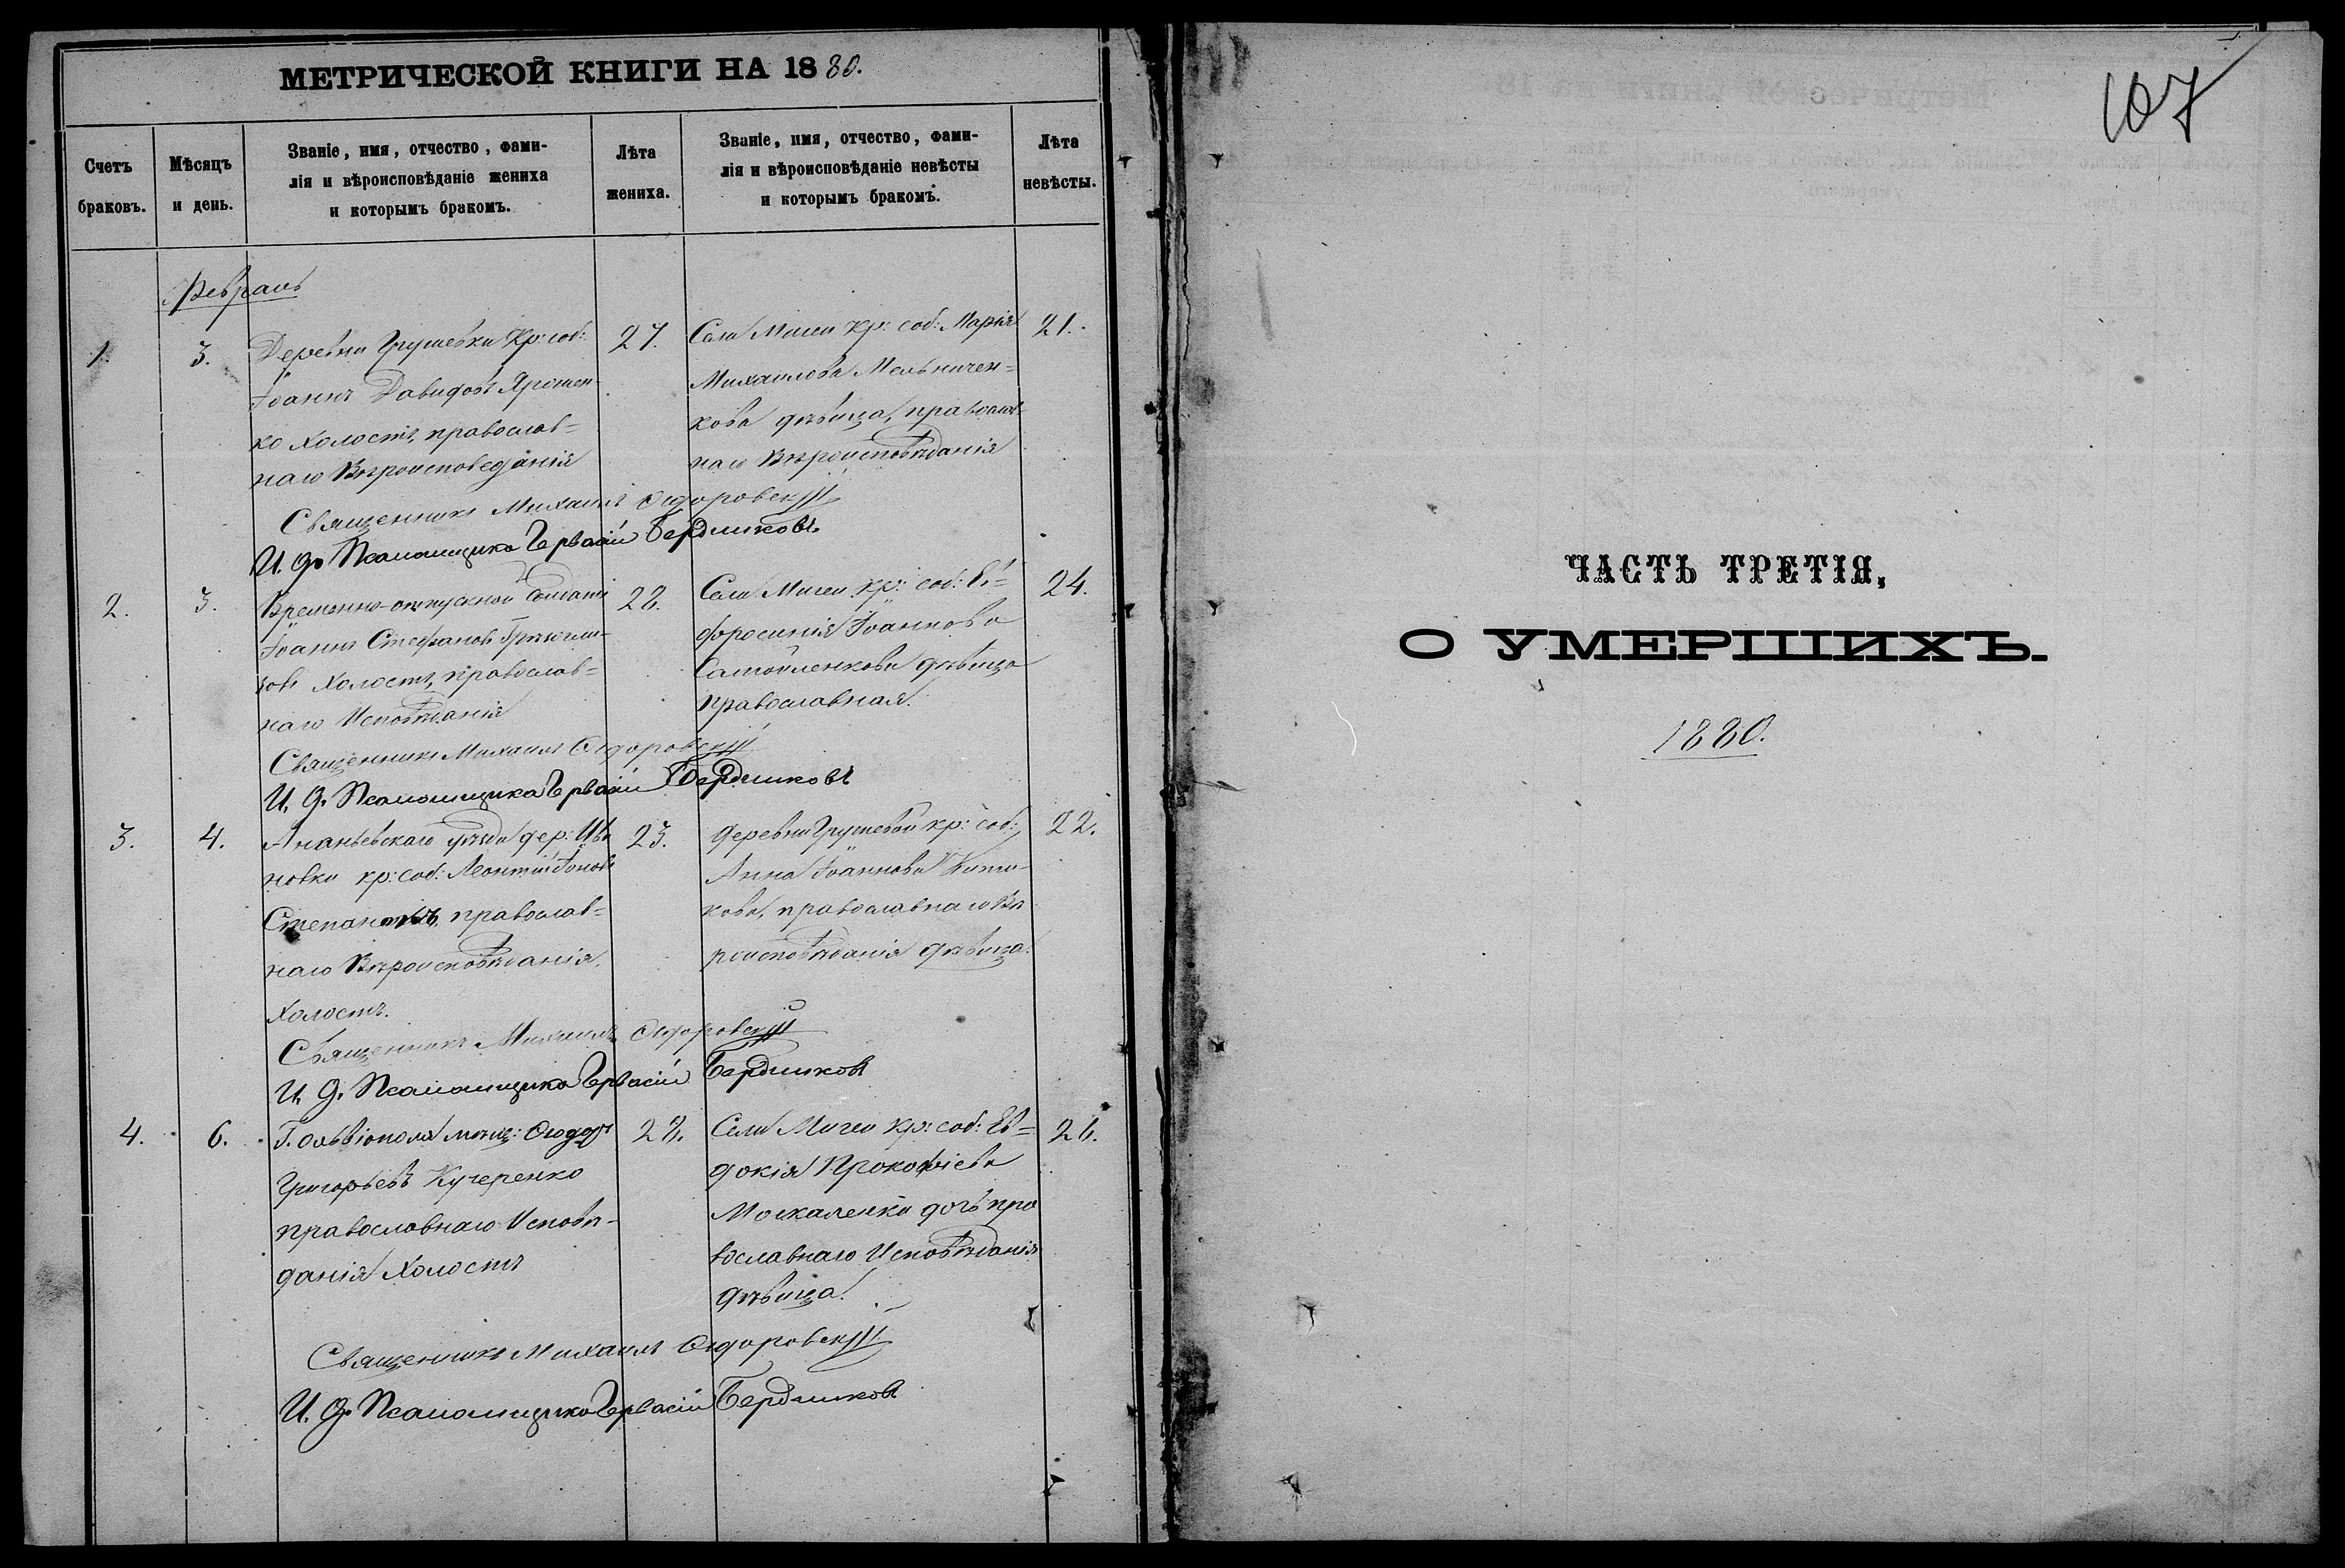 МЕТРИЧЕСКОЙ КНИГИ НА 1880.
Счетъ браковъ.
Мѣсяцъ и день.
Званіе, имя, отчество, фами-
лія и вѣроисповѣданіе жениха
и которымъ бракомъ.
Лѣта жениха.
Званіе, имя, отчество, фами-
лія и вѣроисповѣданіе невѣсты
и которымъ бракомъ.
Лѣта невѣсты.
Февраль
1. 3.
Деревни Грушевки кр: соб:
Іоаннъ Давидовъ Яромен-
ко Холостъ, православ=
наго Вѣроисповеданія
27.
Села Мигеи кр: соб: Марія
Михаилова Мельничен=
кова дѣвица, православ
наго Вѣроисповѣданія
21.
Священникъ Михаилъ Сидоровскій
И. д. Псаломщика Гервасій Бердниковъ
2. 3.
Временно-отпускной Солдатъ
Іоаннъ Стефановъ
Холостъ, православ=
наго Исповѣданія
28.
Села Мигеи кр: соб: Ев=
фросинія Іоаннова
Самойленкова дѣвица
православная.
24.
Священникъ Михаилъ Сидоровскій
И. д. Псаломщика Гервасій Бердниковъ
3. 4.
Ананьевскаго уѣзда дер: Ива
новки кр: соб: Леонтій Іоновъ
православ=
наго Вѣроисповѣданія.
Холостъ.
23.
Деревни Грушевой кр: соб:
Анна Іоаннова
кова, православнаго Вѣ
роисповѣданія дѣвица.
22.
Священникъ Михаилъ Сидоровскій
И. д. Псаломщика Гервасій Бердниковъ
4. 6.
Г. Ольвіополя мѣщ: Ѳеодоръ
Григорьевъ Кучеренко
православнаго Исповѣ-
данія Холостъ
28.
Села Мигеи кр: соб: Ев=
докія Прокофіева
Москаленки дочь пра
вославнаго Исповѣданія
дѣвица.
26.
Священникъ Михаилъ Сидоровскій
И. д. Псаломщика Гервасій Бердниковъ
107
ЧАСТЬ ТРЕТІЯ,
О УМЕРШИХЪ.
1880.